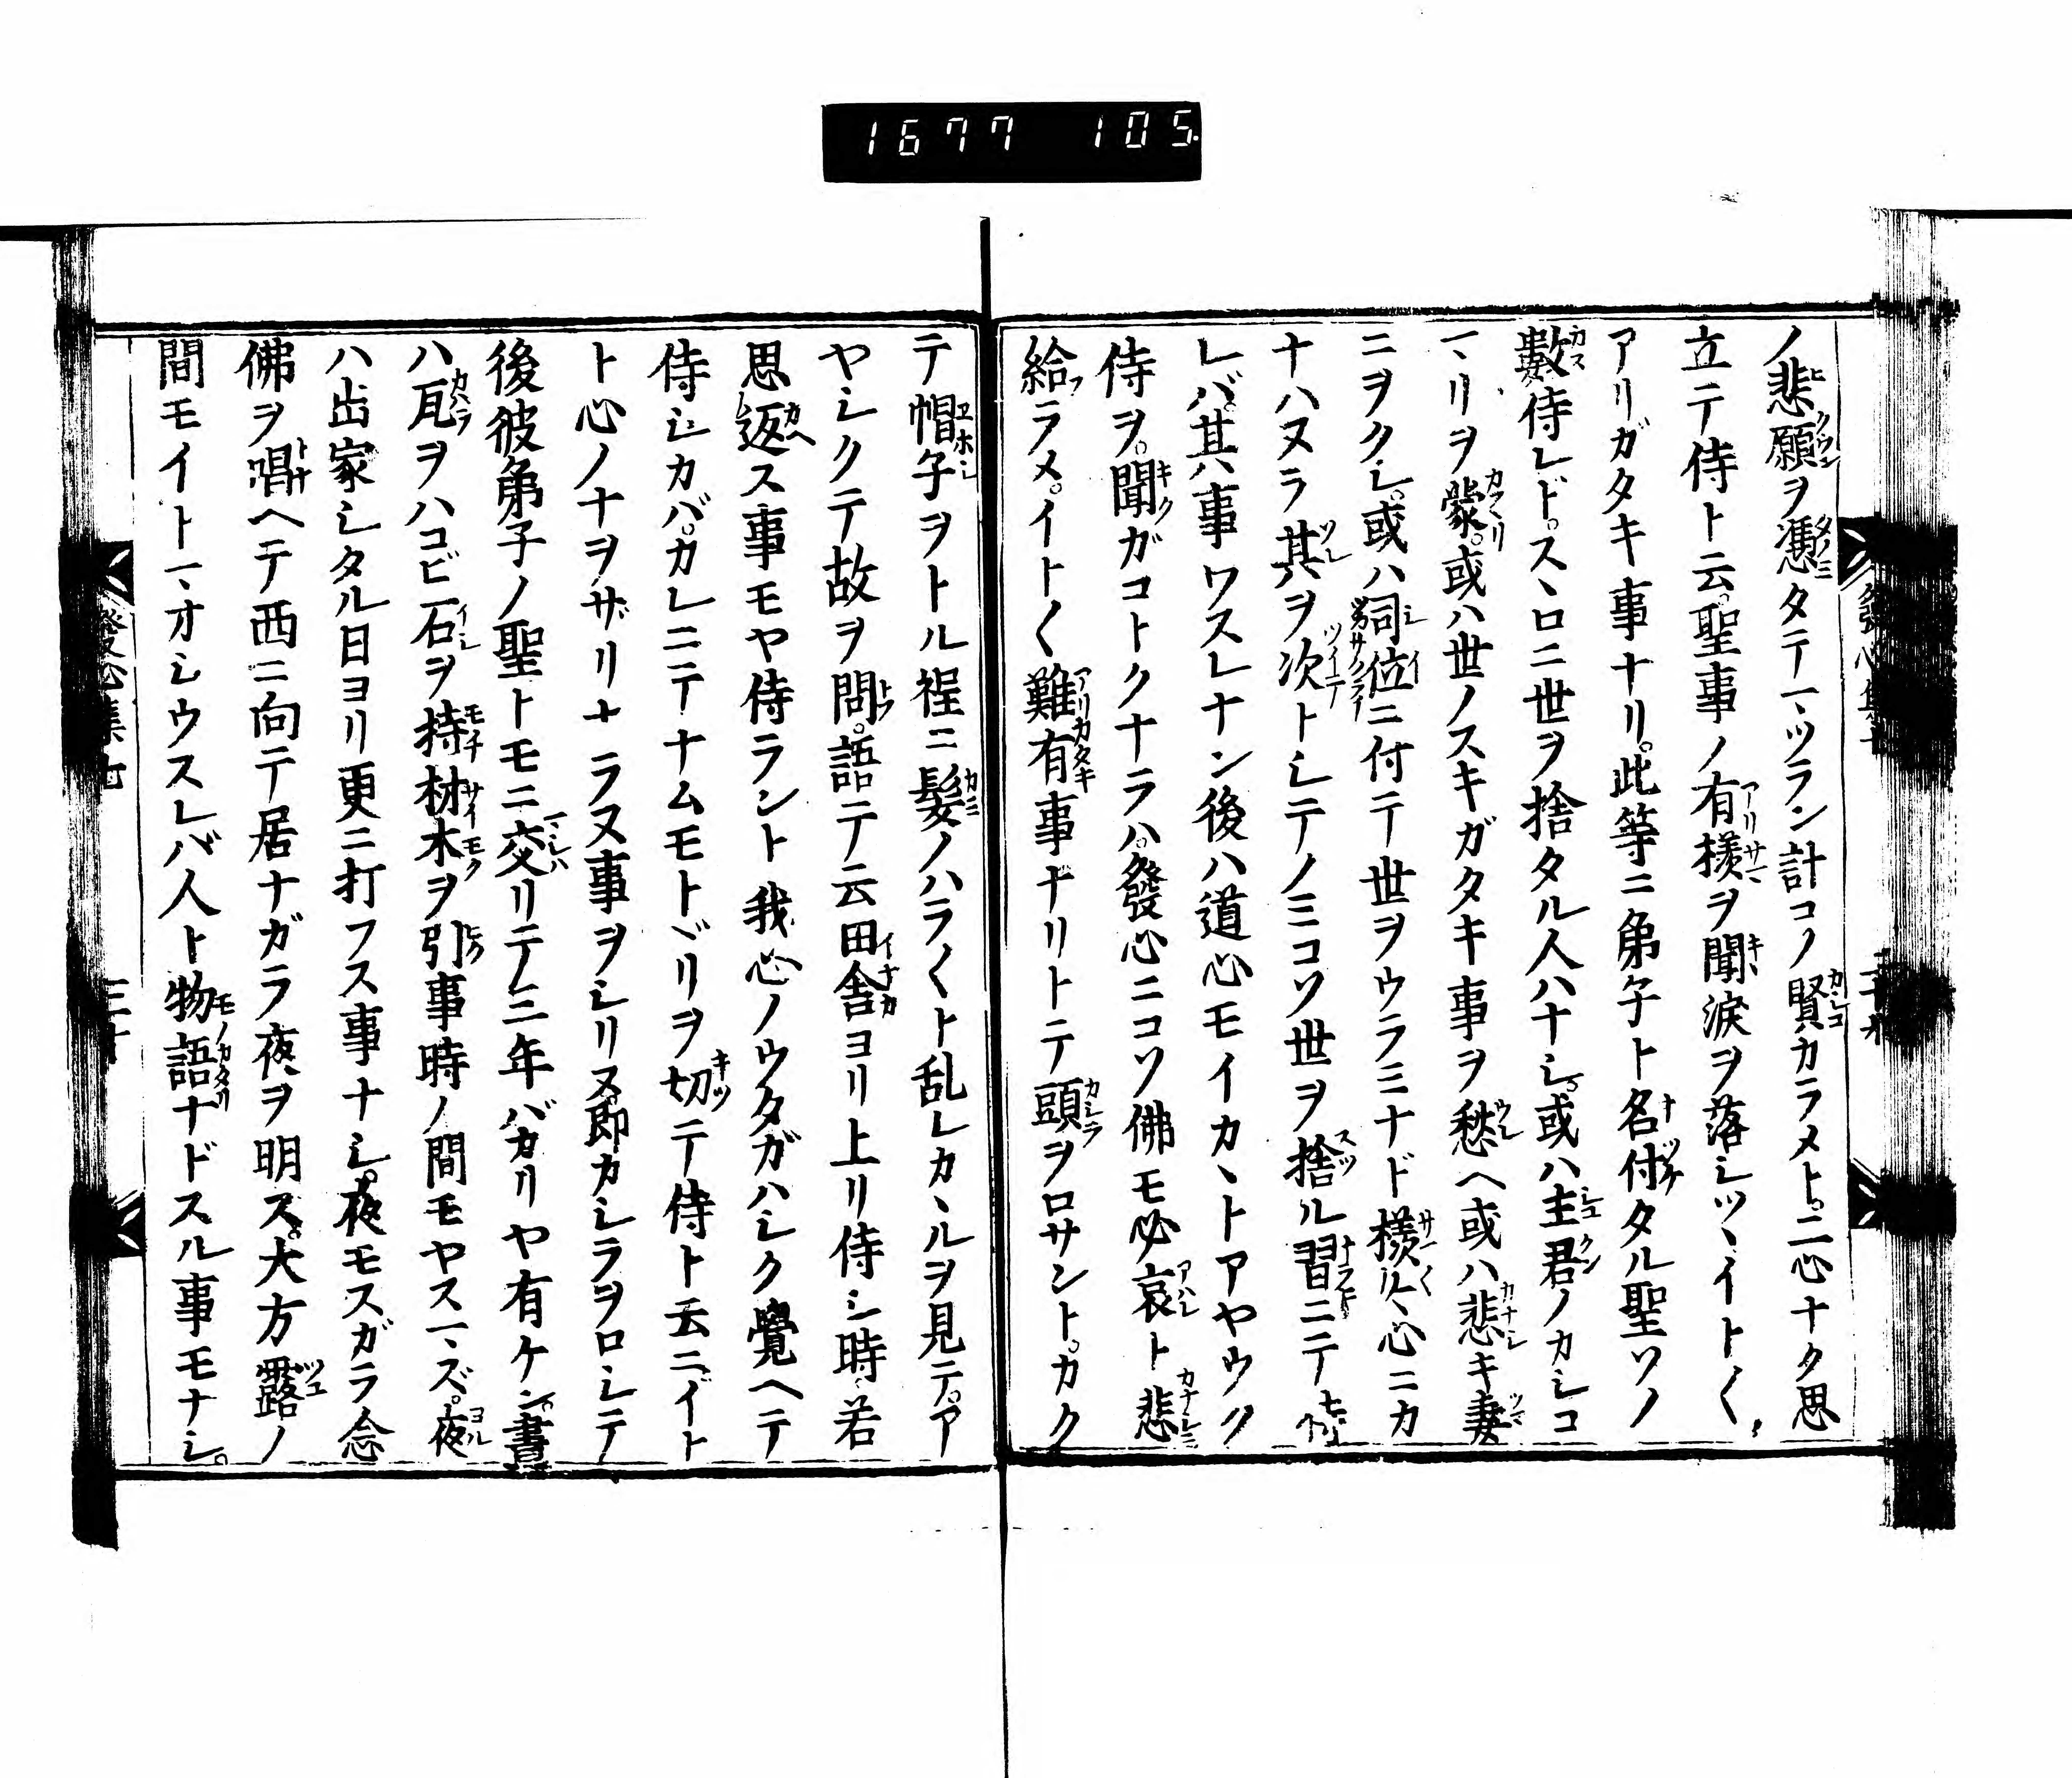 1677 105
ノ悲願ヲ憑タテマツラン計コソ賢カラメト。二心ナク思
立テ侍ト云。聖事ノ有様ヲ聞涙ヲ落シツヽイト〱
アリガタキ事ナリ。此等ニ弟子ト名付タル聖ソノ
數侍レド。スヽロニ世ヲ捨タル人ハナシ。或ハ主君ノカシコ
マリヲ蒙。或ハ世ノスキガタキ事ヲ愁ヘ或ハ悲キ妻
ニヲクレ。或ハ司位ニ付テ世ヲウラミナド様々心ニカ
ナハヌラ其ヲ次トシテノミコソ世ヲ捨ル習ニテ
レバ。其ハ事ワスレナン後ハ道心モイカヽトアヤウク
侍ヲ。聞ガコトクナラハ。發心ニコソ佛モ必哀ト悲
給ラメ。イト〱難有事ナリトテ頭ヲロサント。カク
テ帽子ヲトル程ニ髮ノハラ〱ト乱レカヽルヲ見テ。ア
ヤシクテ故ヲ問。語テ云田舎ヨリ上リ侍シ時若
思返ス事モヤ侍ラント我心ノウタガハシク覺ヘテ
侍シカバ。カレニテナムモトヾリヲ切テ侍ト云ニ。イト
ト心ノナヲザリナラヌ事ヲシリヌ。即カシラヲロシテ
後彼弟子ノ聖トモニ交リテ二三年バカリヤ有ケン。晝
ハ瓦ヲハコビ石ヲ持材木ヲ引事時ノ間モヤスマズ。夜
ハ出家シタル日ヨリ更ニ打フス事ナシ。夜モスガラ念
佛ヲ唱ヘテ西ニ向テ居ナガラ夜ヲ明ス。大方露ノ
間モイトマオシウスレバ人ト物語ナドスル事モナシ。
發心集七
三十